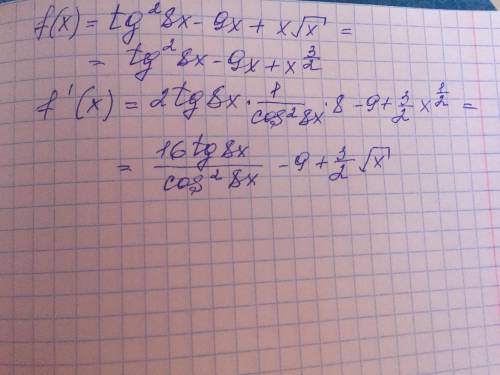 f(x) = tg²8x - 9x + x√x =
= tg²8x - 9x + x^(3/2)
f'(x) = 2tg8x · 1/cos²8x · 8 - 9 + 3/2 x^(1/2) =
= 16tg8x/cos²8x - 9 + 3/2 √x